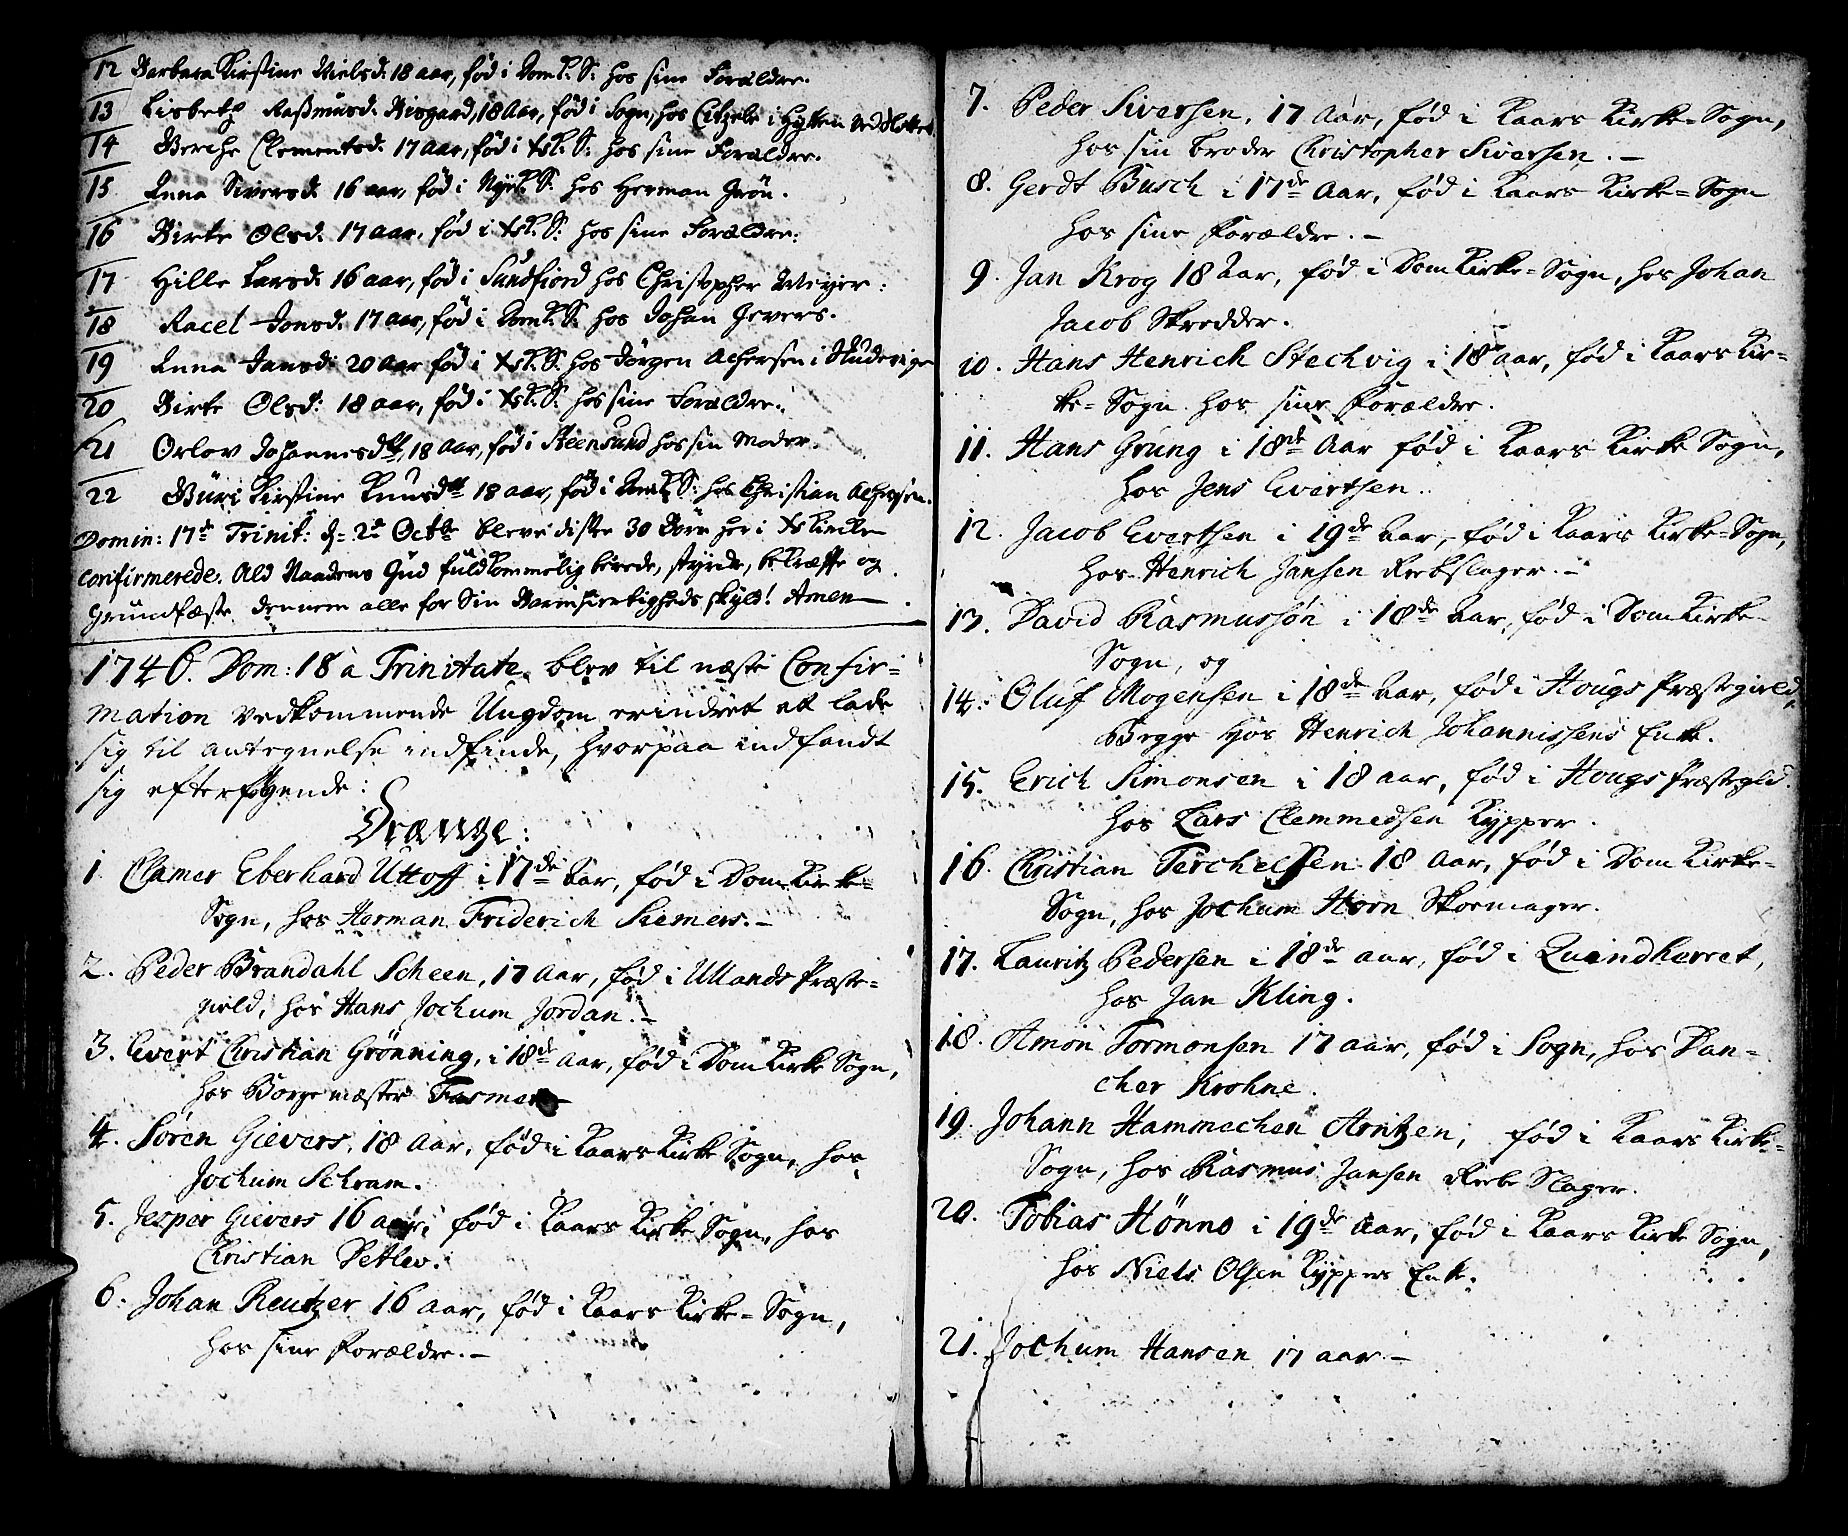 12 Barbara Kirstine Nielsd. 18 aar, fød i Domk. S. hos sine Forældre.
13 Lisbeth Rasmusd. Bisgard, 18 Aar, fød i Sogn, hos Citzele i Hytten ved Slottet
14 Berthe Clementsd. 17 Aar, fød i XK. S. hos sine Forældre.
15 Anna Siversd. 16 aar, fød i Nyek. S. hos Herman Grøn.
16 Birte Olsd. 17 aar, fød i XK. S. hos sine Forældre.
17 Hille Larsd. 16 aar, fød i Sundfiord hos Christopher Meyer.
18 Racel Jonsd. 17 aar, fød i Domk. S. hos Johan Gevers.
19 Anna Jansd. 20 Aar fød i XK. S. hos Jørgen Achersen i Skudevigen
20 Birte Olsd. 18 aar, fød i XK. S. hos sine Forældre.
21 Orlov Johannesd. 18 Aar, fød i Steensund hos sin Moder.
22 Kirstine Knudsd. 18 aar, fød i Domk. S. hos Christian Achersen.
Domin: 17de Trinit: d. 2de Octbr bleve disse 30 Børn her i XKircken
confirmerede. Ald Naadens Gud fuldkommelig berede, styrcke, bekræffte og
Grundfæste dennem alle for Sin Barmhiertigheds skyld! Amen.
1746. Dom: 18 a Trinitate blev til næste Confir-
mation vedkommende Ungdom erindret at lade
sig til antegnelse indfinde, hvorpaa indfandt
sig efterfølgende:
Drænge:
1 Clamer Eberhard Uttoff i 17de Aar, fød i DomKirke-
Sogn, hos Herman Friderich Siemers. –
2. Peder Brandahl Scheen, 17 Aar, fød i Ullands Præste-
gield, hos Hans Jochum Jordan. –
3. Evert Christian Grønning, i 18de aar, fød i DomKirke Sogn,
hos Borgemæster Fasmer
4. Søren Gievers, 18 Aar, fød i Kaars Kirke Sogn, hos
Jochum Schram.
5. Jesper Gievers 16 aar, fød i Kaars Kirke Sogn, hos
Christian Detlev.
6. Johan Reutzer 16 aar, fød i Kaars Kirke-Sogn,
hos sine Forældre. –
7. Peder Siversen, 17 Aar, fød i Kaars Kirke-Sogn,
hos sin Broder Christopher Siversen. –
8. Gerdt Busch i 17de Aar, fød i Kaars Kirke-Sogn
hos sine Forældre. –
9. Jan Krog 18 Aar, fød i DomKirke-Sogn, hos Johan
Jacob Skredder.
10. Hans Henrich Stechvig i 18de aar, fød i Kaars Kir-
ke-Sogn hos sine Forældre.
11. Hans Grung i 18de Aar fød i Kaars Kirke Sogn,
hos Jens Evertsen.
12. Jacob Evertsen i 19de Aar, fød i Kaars Kirke-Sogn,
hos Henrich Jansen Rebslager. –
13. David Rasmussøn i 18de Aar, fød i DomKirke-
Sogn, og
14. Oluf Mogensen i 18de Aar, fød i Hougs Præstegield,
Begge hos Henrich Johannissens Enke.
15. Erich Simonsen i 18 aar, fød i Hougs Præstegld.
hos Lars Clemmedsen Kypper.
16. Christian Terchelsen 18 Aar, fød i Dom Kirke-
Sogn, hos Jochum Horn Skoemager.
17. Lauritz Pedersen i 18de aar, fød i Quindherret,
hos Jan Kling.
18. Amon Tormonsen 17 aar, fød i Sogn, hos Dan-
cher Krohne.
19. Johann Hammechen Arntzen, fød i Kaars Kirke-
Sogn, hos Rasmus Jansen Rebe Slager.
20. Tobias Hønno i 19de Aar, fød i Kaars Kirke Sogn,
hos Niels Olsen Kyppers Enke.
21. Jochum Hansen 17 aar –